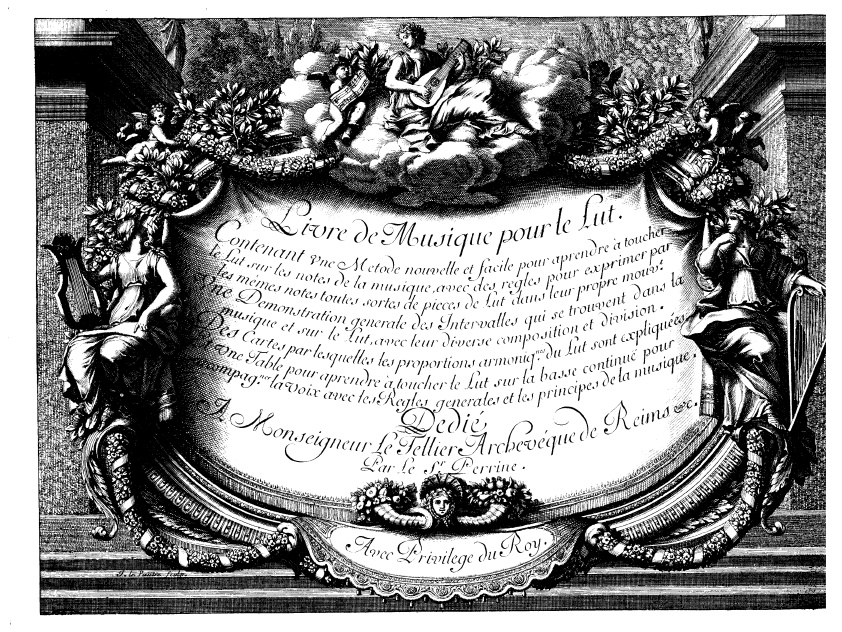 Livre de Musique pour le Lut.
Contenant vne Metode nouvelle et facile pour aprendre à toucher
le Lut sur les notes de la musique, avec des regles pour exprimer par
les mêmes notes toutes sortes de pieces de Lut dans leur propre mouv.t
Vne Demonstration generale des Intervalles qui se trouvent dans la
musique et sur le Lut, avec leur diverse composition et division.
Des Cartes par lesquelles les proportions armoniq.nes du Lut sont expliquées,
Et vne Table pour aprendre à toucher le Lut sur la basse continue pour
accompag.ner la voix avec les Regles generales et les principes de la musique.
Dedié
A Monseigneur Le Tellier Archevéque de Reims &c.
Par Le Sr. Perrine.
Avec Privilege du Roy.